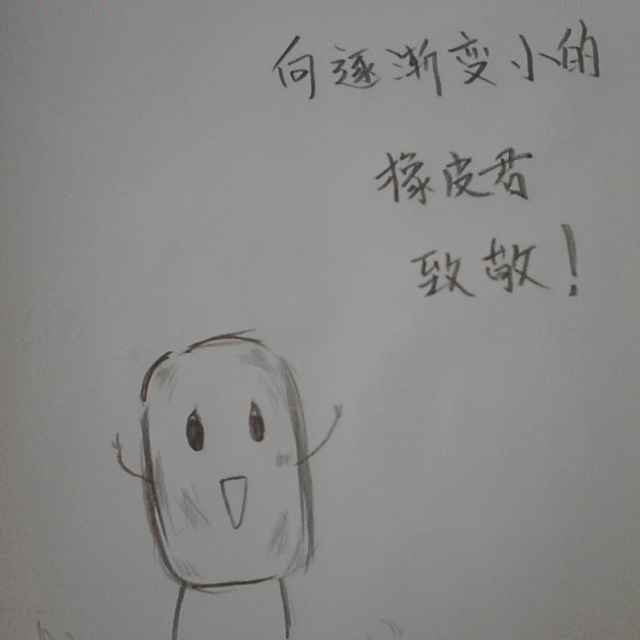 向逐渐变小的
橡皮君
致敬！